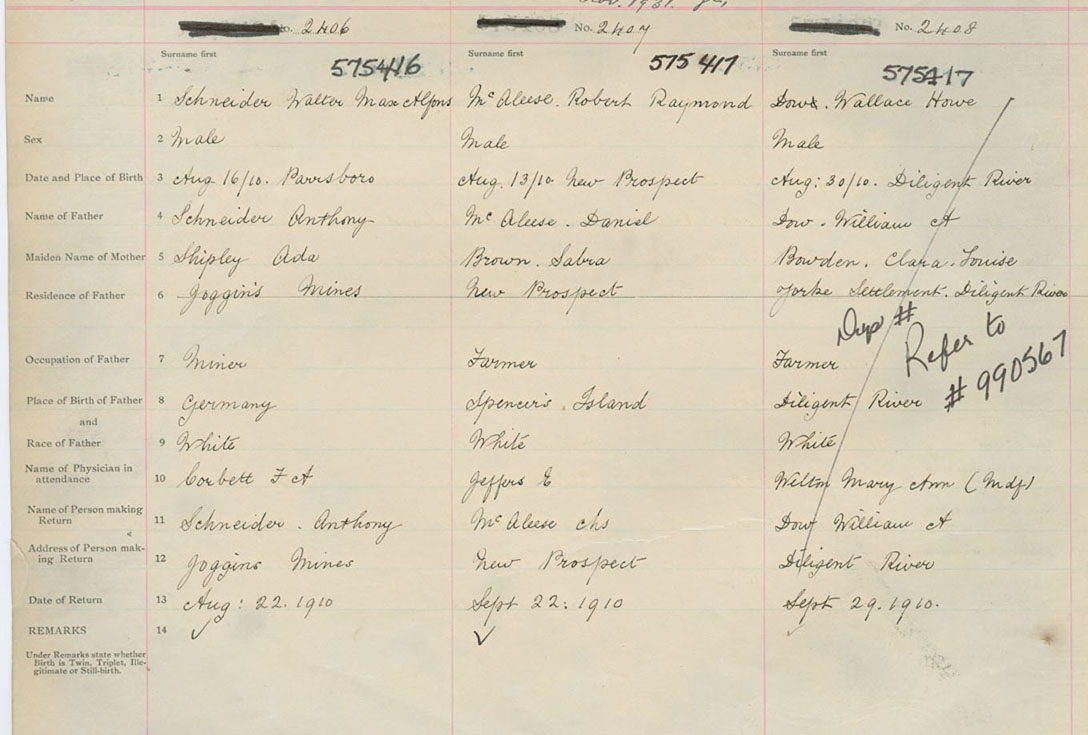 No. 2406 No. 2407 No. 2408
Surname first Surname first Surname first
575416 575417 575417
Name 1 Schneider Walter Max Alfons McAleese. Robert Raymond Dow. Wallace Howe
Sex 2 Male Male Male
Date and Place of Birth 3 Aug 16/10. Parrsboro Aug. 13/10 New Prospect Aug: 30/10. Diligent River
Name of Father 4 Schneider Anthony McAleese. Daniel Dow. William A
Maiden Name of Mother 5 Shipley Ada Brown. Sabra Bowden. Clara. Louise
Residence of Father 6 Joggins Mines New Prospect Yorke Settlement. Diligent River
Dup # Refer to
# 990567
Occupation of Father 7 Miner Farmer Farmer
Place of Birth of Father 8 Germany Spencer's Island Diligent River
and
Race of Father 9 White White White
Name of Physician in
attendance 10 Corbett F A Jeffers E Wilton Mary Ann (Mdf)
Name of Person making
Return 11 Schneider. Anthony McAleese Chs Dow William A
Address of Person mak-
ing Return 12 Joggins Mines New Prospect Diligent River
Date of Return 13 Aug: 22. 1910 Sept 22: 1910 Sept 29. 1910.
REMARKS 14 ✓ ✓
Under Remarks state whether
Birth is Twin, Triplet, Ille-
gitimate or Still-birth.